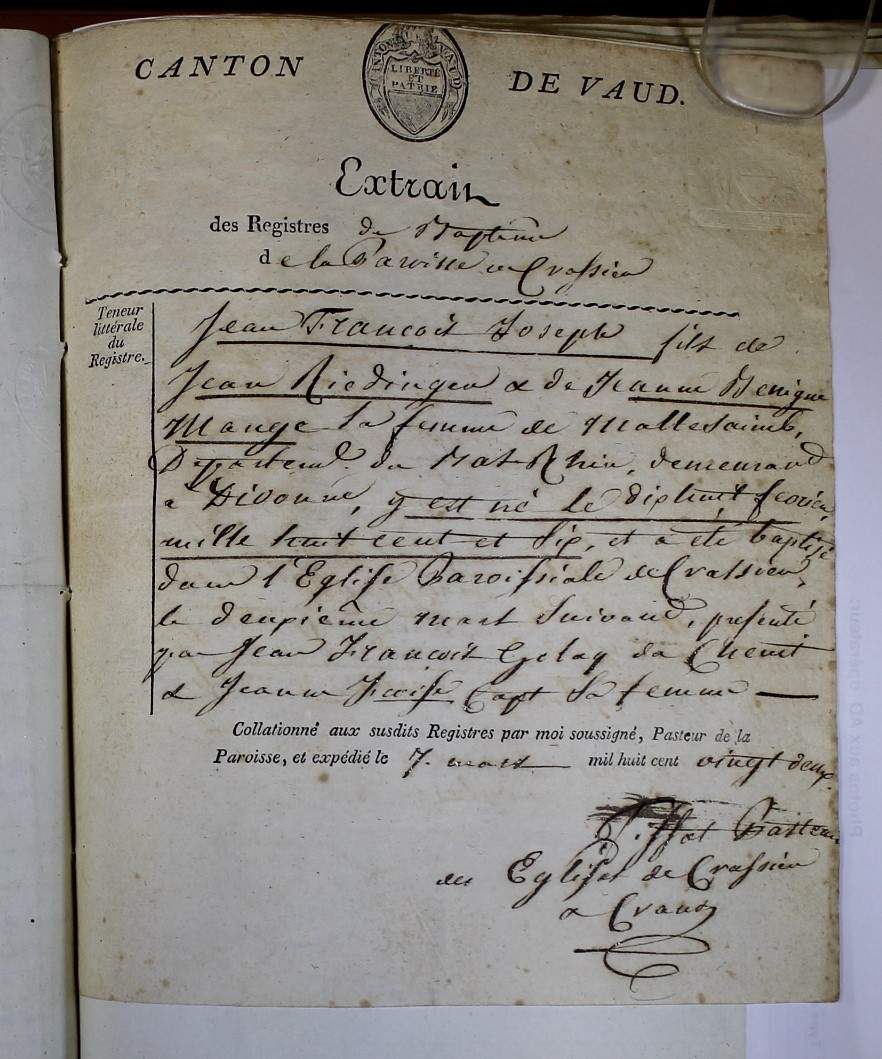 CANTON DE VAUD.
CANTON DE VAUD
LIBERTÉ
ET
PATRIE
Extrait
des Registres de Baptême
de la Paroisse de Crassier
Teneur
littérale
du
Registre.
Jean François Joseph fils de
Jean Riedinger & de Jeanne Benigne
Mange sa femme de
Département du Bas Rhin, demeurant
à Divonne, y est né le dixhuit fevrier
mille huit cent et six, et a été baptisé
dans l'Eglise Paroissiale de Crassier,
le deuxième mars suivant, présenté
par Jean François Golay du Chenit
& Jeanne Capt sa femme
Collationné aux susdits Registres par moi soussigné, Pasteur de la
Paroisse, et expédié le 7. mars mil huit cent vingt deux.
Pasteur
des Eglises de Crassier
& Crans